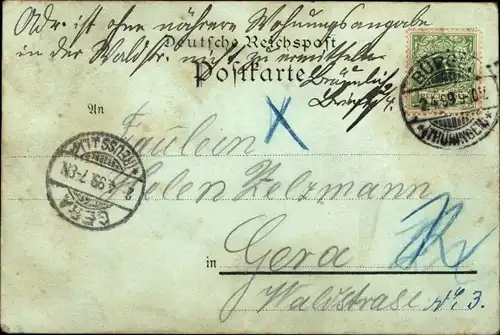 Adr. ist ohne nähere Wohnungsangabe
in der Waldstr. nicht zu ermitteln
Deutsche Reichspost
Postkarte
An
Fräulein
Helen Zelzmann
in Gera
Waldstraße № 3.
BÜRGEL
2.4.99.9-
*(THÜRINGEN)*
GERA
(REUSS J.L.)
2.4.99.7-8N.